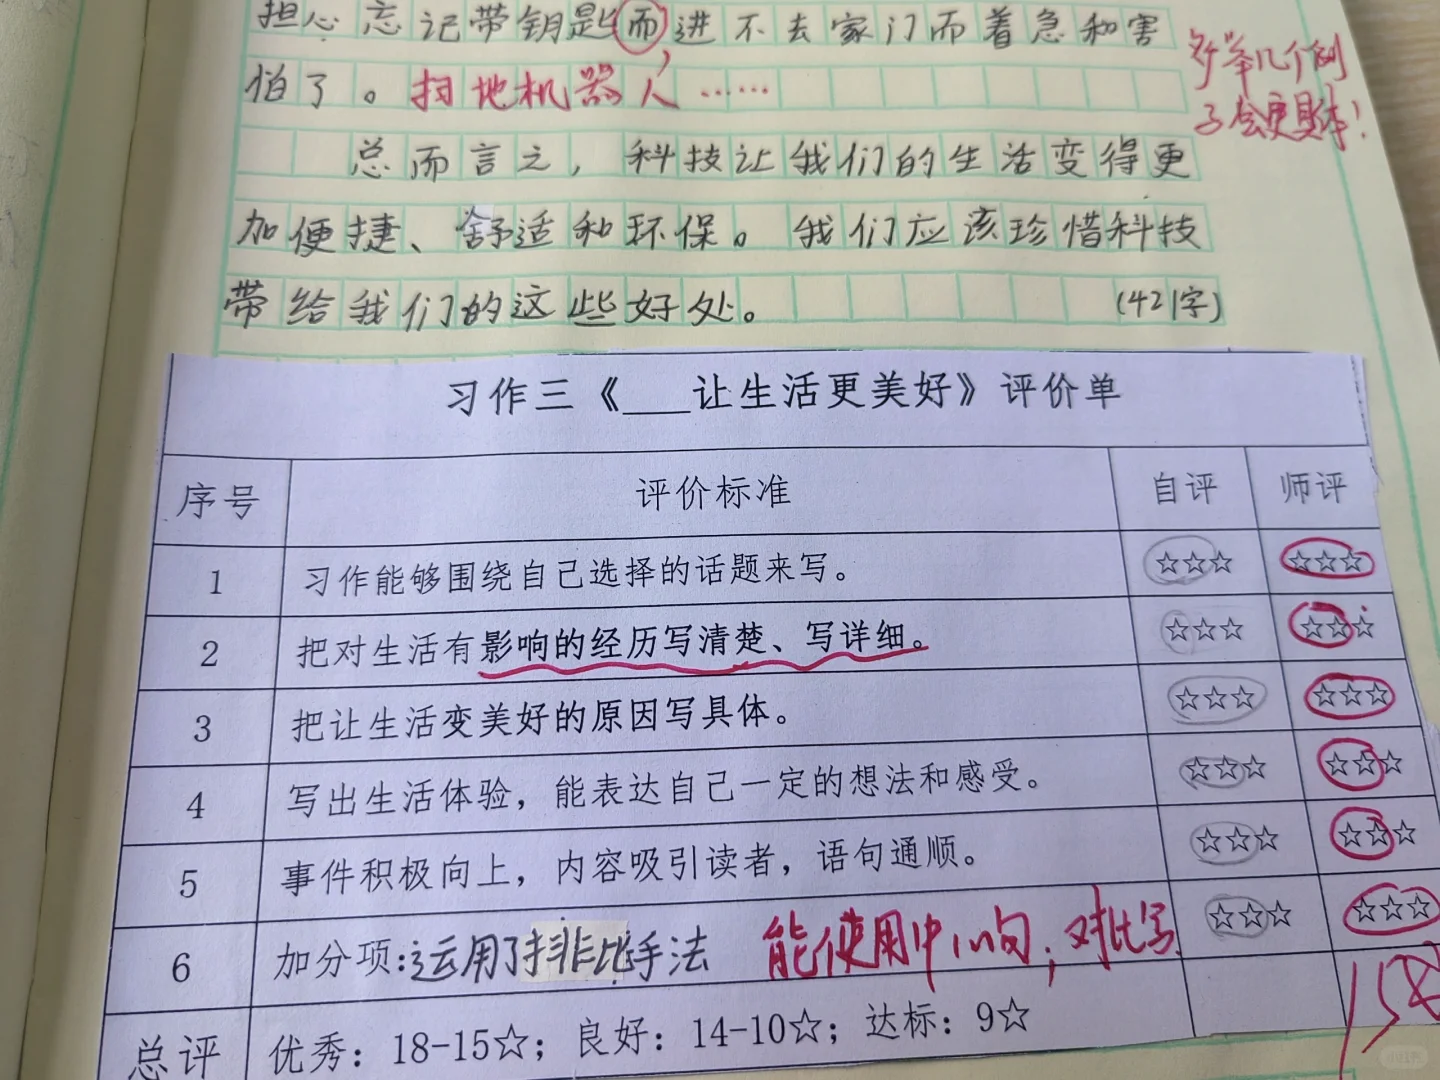 担心忘记带钥匙而进不去家门而着急和害
怕了。扫地机器人……
多举几个例
子会更具体！
总而言之，科技让我们的生活变得更
加便捷、舒适和环保。我们应该珍惜科技
带给我们的这些好处。 (421字)
习作三《___让生活更美好》评价单
序号 评价标准 自评 师评
1 习作能够围绕自己选择的话题来写。 ☆☆☆ ☆☆☆
2 把对生活有影响的经历写清楚、写详细。 ☆☆☆ ☆☆☆
3 把让生活变美好的原因写具体。 ☆☆☆ ☆☆☆
4 写出生活体验，能表达自己一定的想法和感受。 ☆☆☆ ☆☆☆
5 事件积极向上，内容吸引读者，语句通顺。 ☆☆☆ ☆☆☆
6 加分项：运用了排比手法 能使用中心句；对比写 ☆☆☆ ☆☆☆
总评 优秀：18-15☆；良好：14-10☆；达标：9☆ 15☆